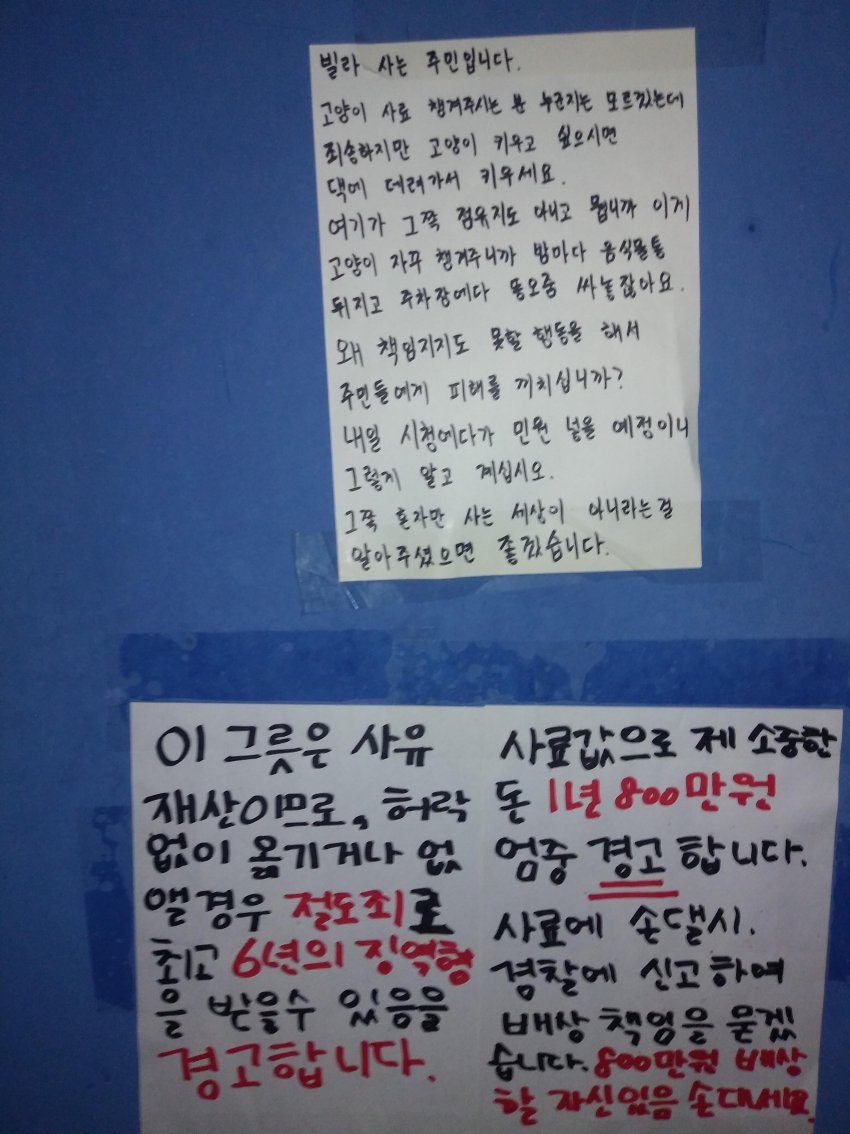 빌라 사는 주민입니다.
고양이 사료 챙겨주시는 분 누군지는 모르겠는데
죄송하지만 고양이 키우고 싶으시면
댁에 데려가서 키우세요.
여기가 그쪽 점유지도 아니고 뭡니까 이게
고양이 자꾸 챙겨주니까 밤마다 음식물통
뒤지고 주차장에다 똥오줌 싸놓잖아요.
왜 책임지지도 못할 행동을 해서
주민들에게 피해를 끼치십니까?
내일 시청에다가 민원 넣을 예정이니
그렇게 알고 계십시오.
그쪽 혼자만 사는 세상이 아니라는걸
알아주셨으면 좋겠습니다.
이 그릇은 사유
재산이므로, 허락
없이 옮기거나 없
앨경우 절도죄로
최고 6년의 징역형
을 받을수 있음을
경고합니다.
사료값으로 제 소중한
돈 1년 800만원
엄중 경고합니다.
사료에 손댈시.
경찰에 신고하여
배상 책임을 묻겠
습니다. 800만원 배상
할 자신있음 손대세요.